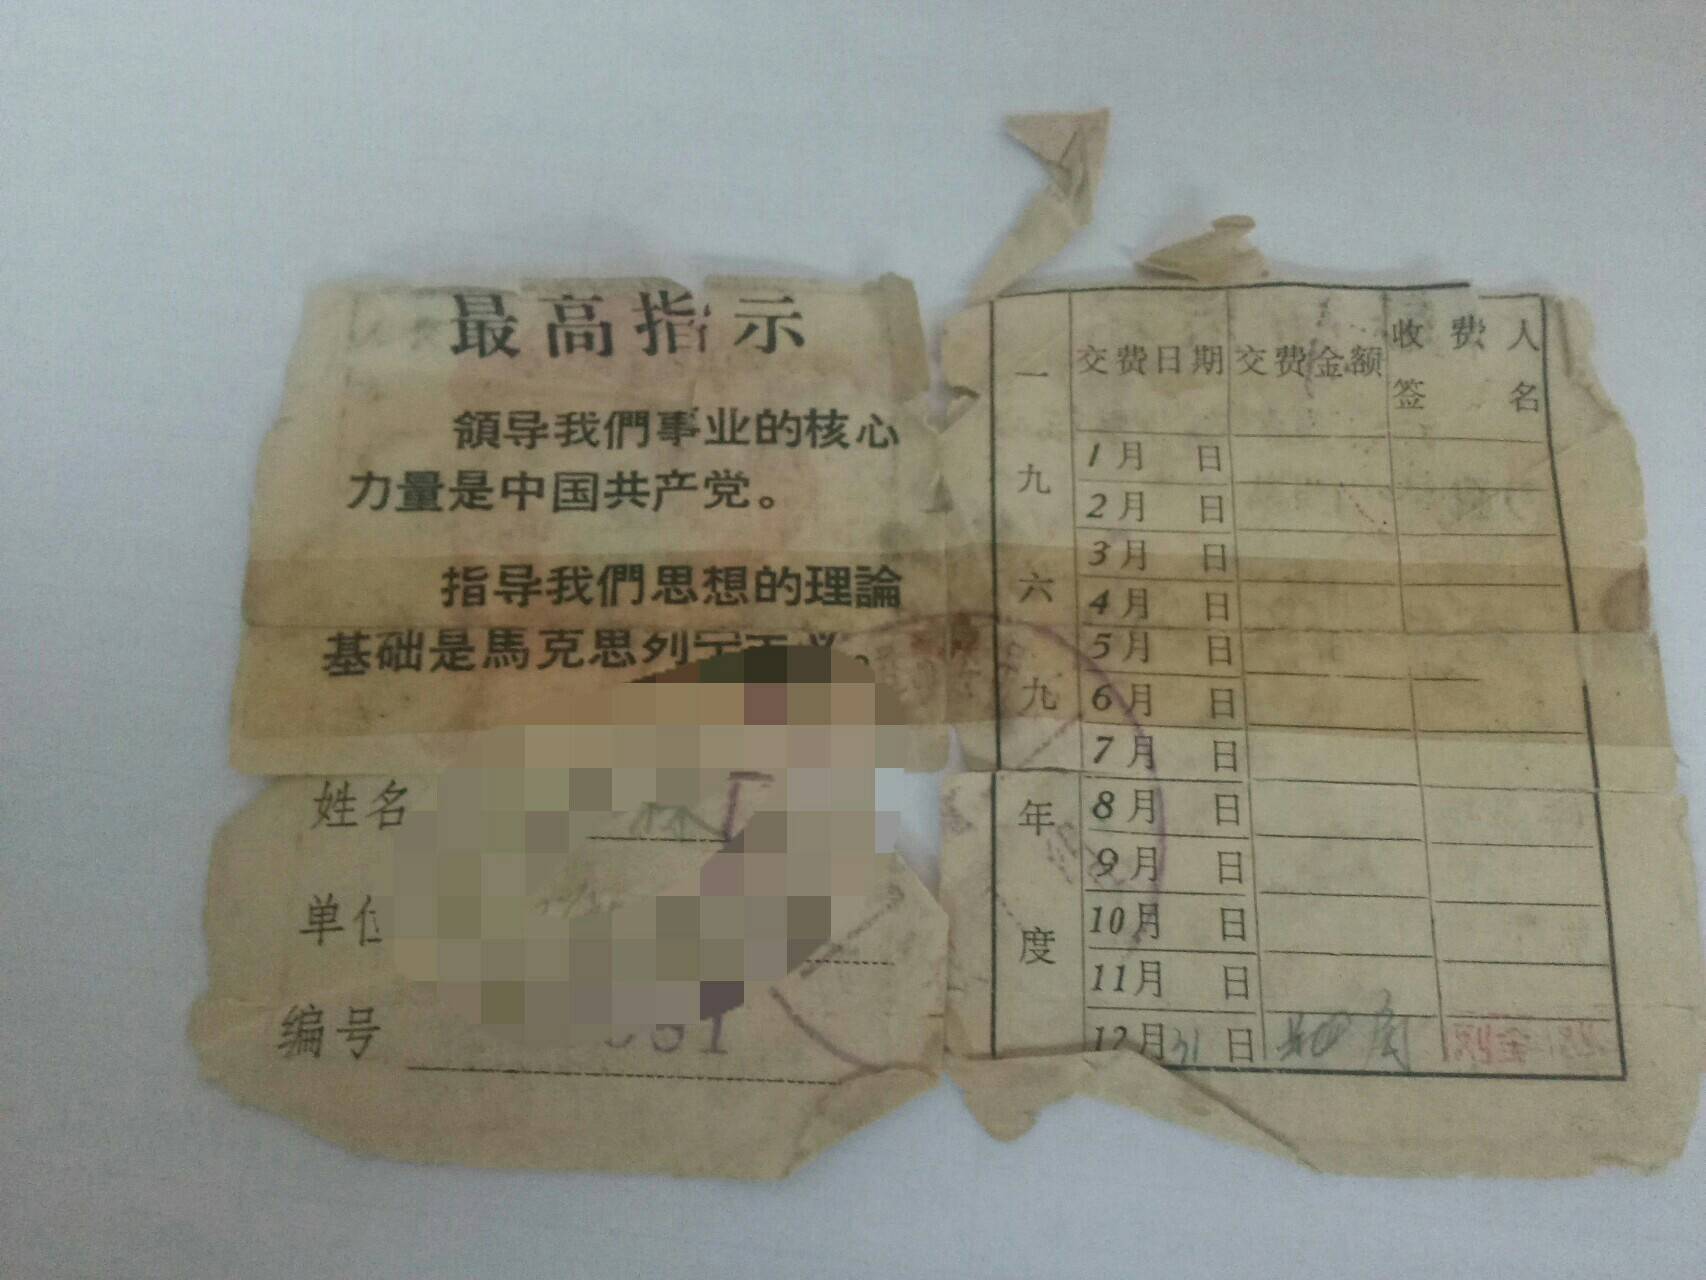 最高指示
領导我們事业的核心
力量是中国共产党。
指导我們思想的理論
基础是馬克思列宁主义。
姓名
单位
编号
一九六九年度
交费日期 交费金额 收费人签名
1月 日
2月 日
3月 日
4月 日
5月 日
6月 日
7月 日
8月 日
9月 日
10月 日
11月 日
12月31日